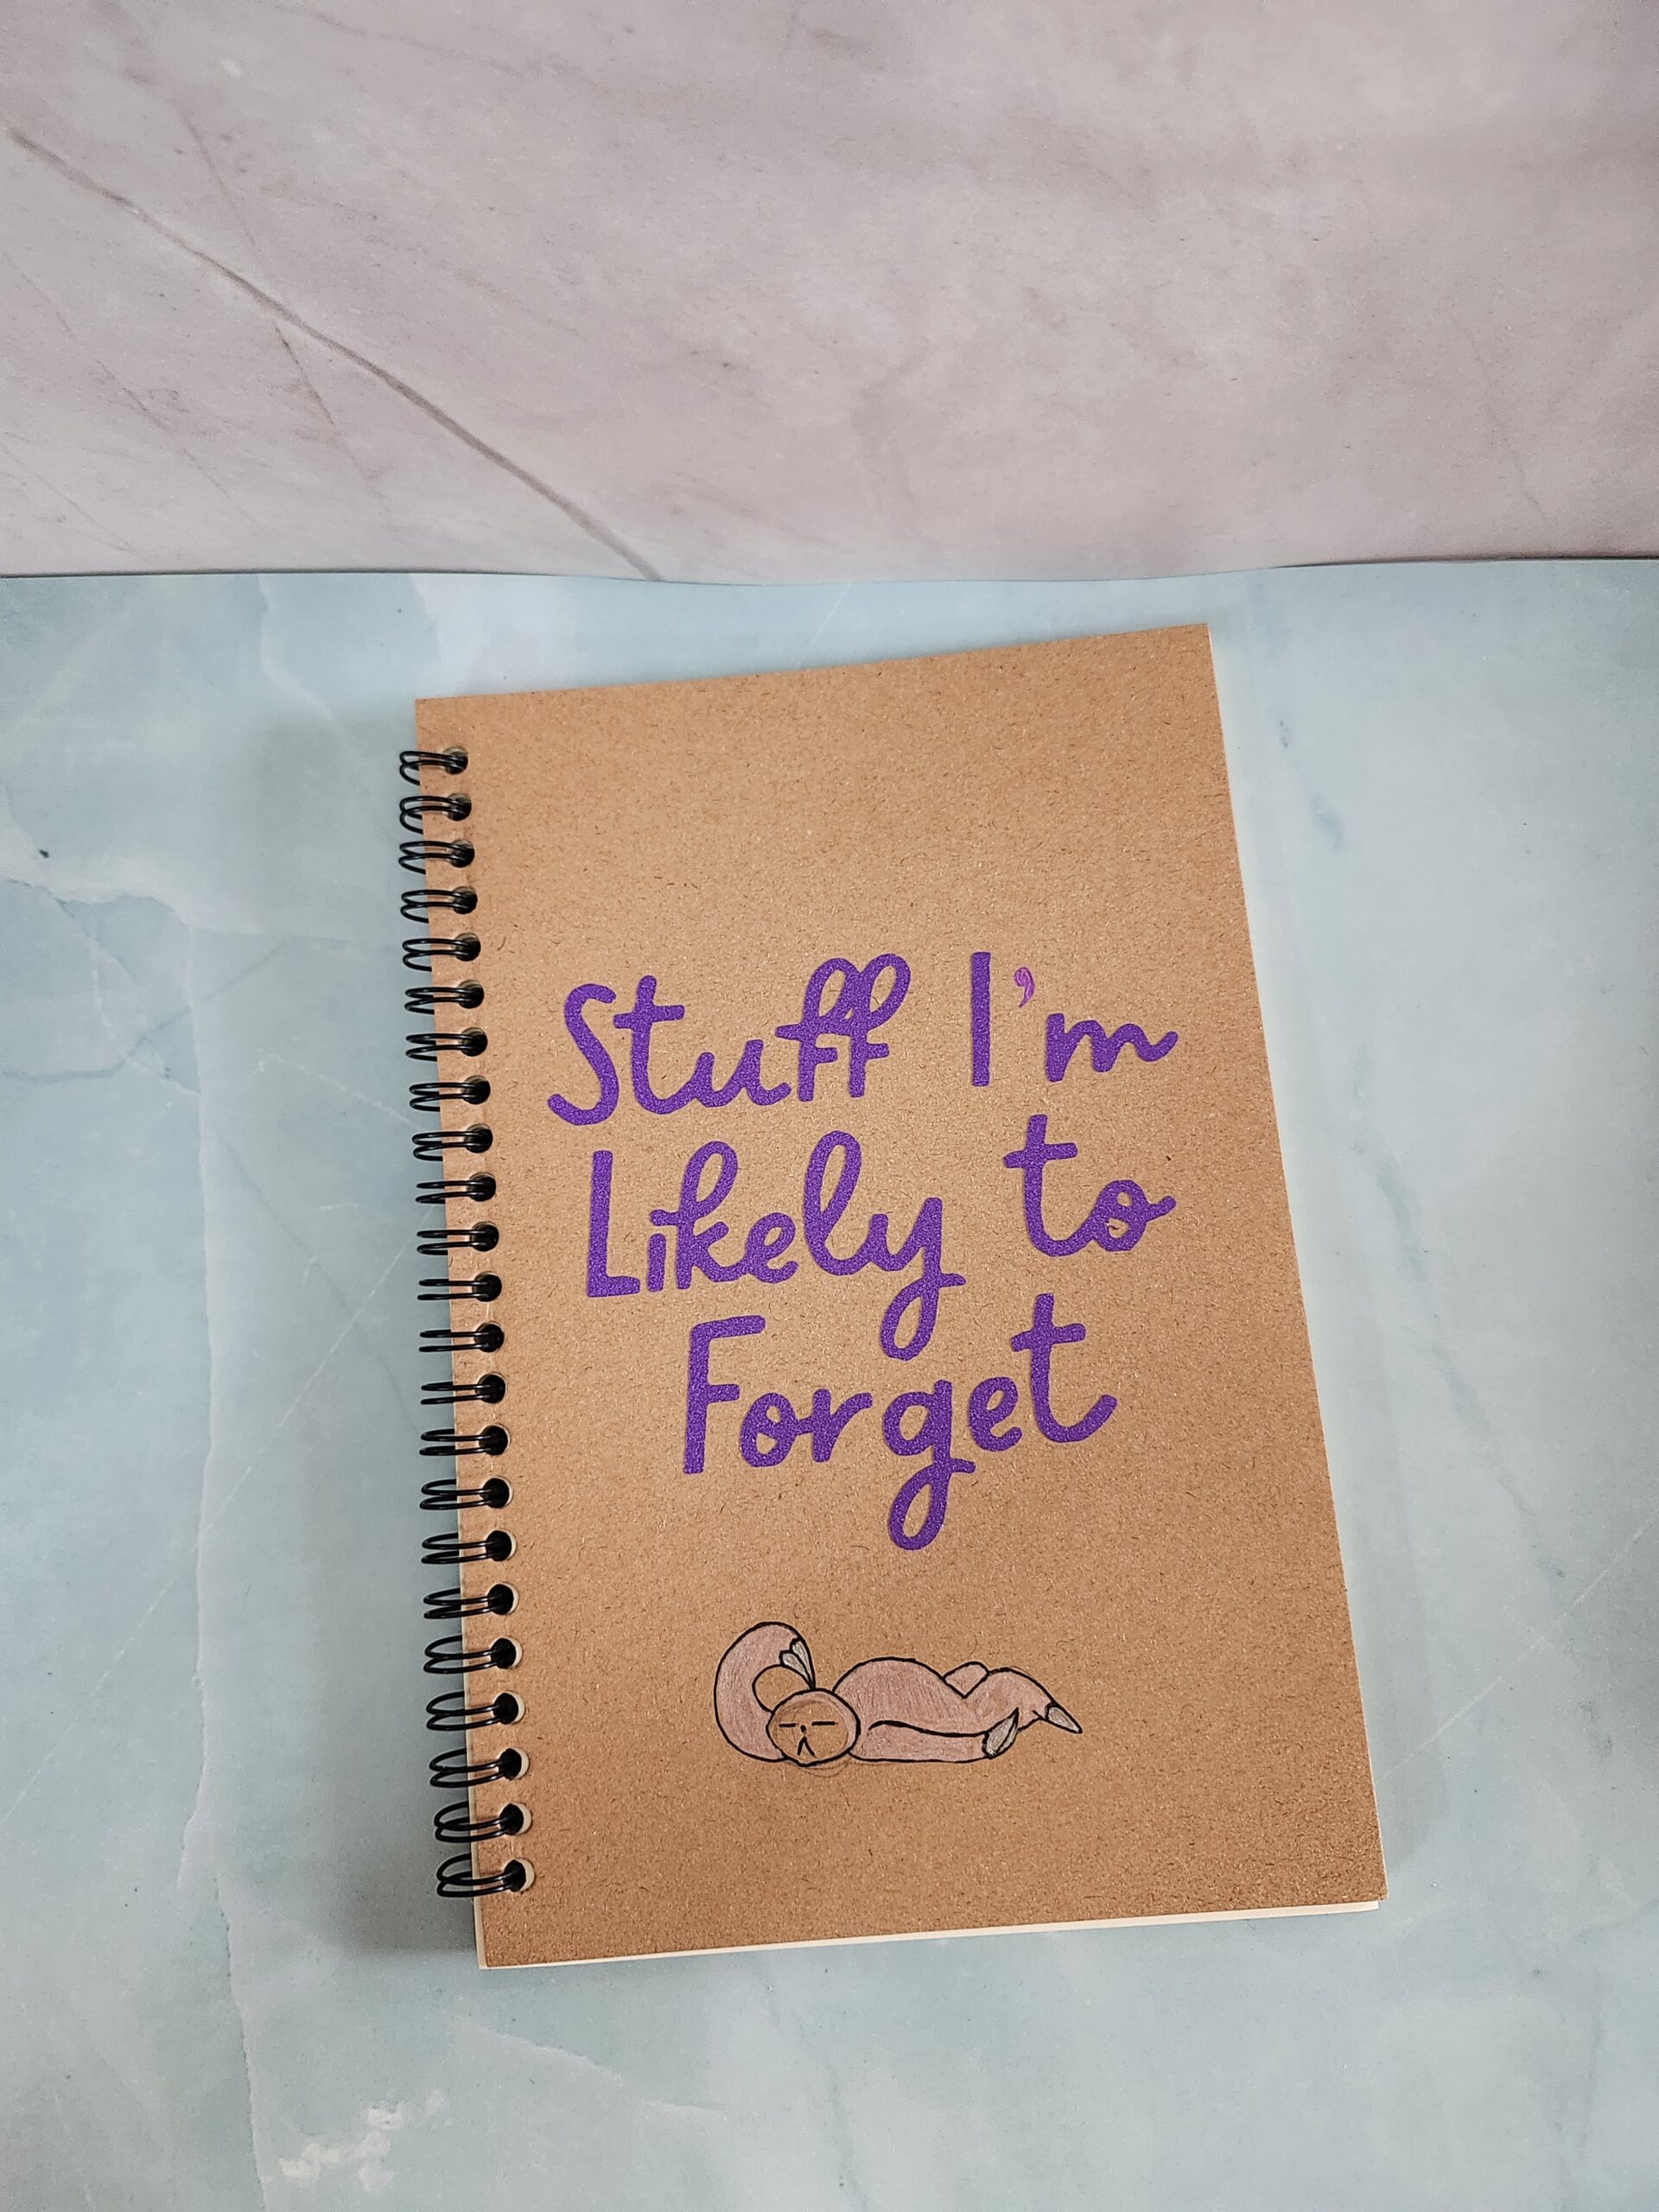 Stuff I'm
Likely to
Forget